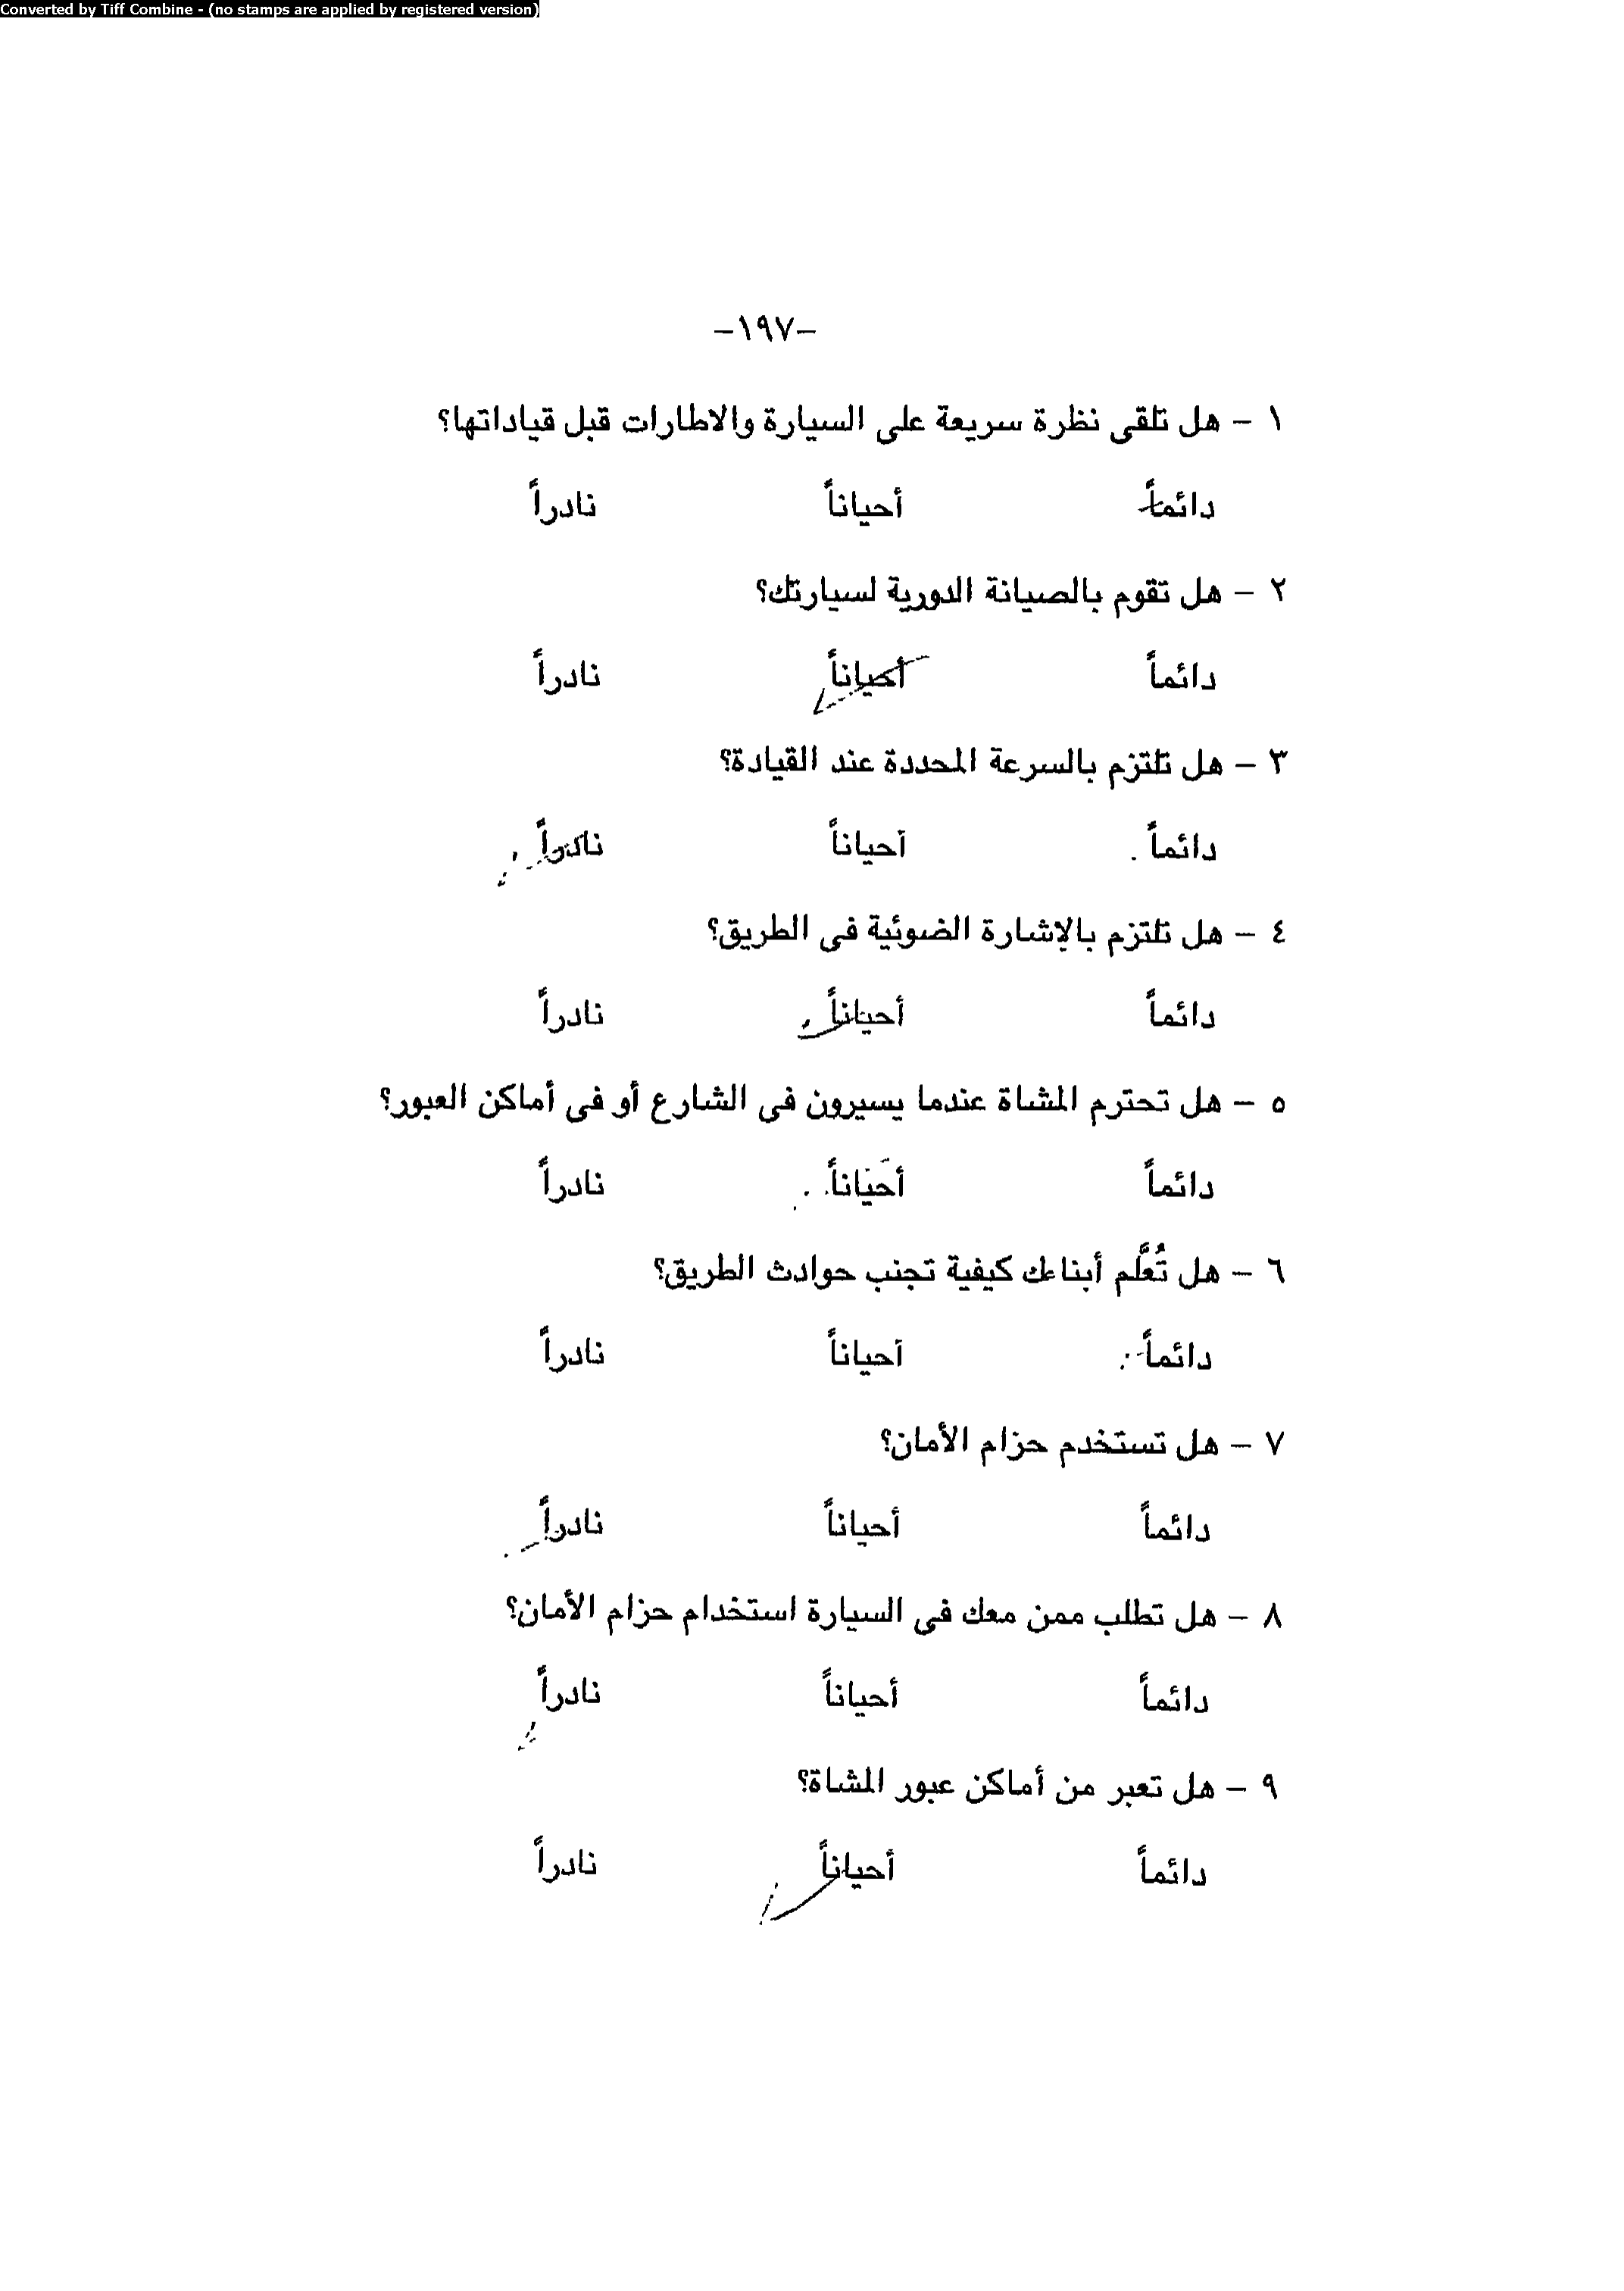 Converted by Tiff Combine - (no stamps are applied by registered version)
-١٩٧-
١ - هل تلقى نظرة سريعة على السيارة والاطارات قبل قياداتها؟
دائماً أحياناً نادراً
٢ - هل تقوم بالصيانة الدورية لسيارتك؟
دائماً أحياناً نادراً
٣ - هل تلتزم بالسرعة المحددة عند القيادة؟
دائماً أحياناً نادراً
٤ - هل تلتزم بالإشارة الضوئية فى الطريق؟
دائماً أحياناً نادراً
٥ - هل تحترم المشاة عندما يسيرون فى الشارع أو فى أماكن العبور؟
دائماً أحياناً نادراً
٦ - هل تُعلَّم أبناءك كيفية تجنب حوادث الطريق؟
دائماً أحياناً نادراً
٧ - هل تستخدم حزام الأمان؟
دائماً أحياناً نادراً
٨ - هل تطلب ممن معك فى السيارة استخدام حزام الأمان؟
دائماً أحياناً نادراً
٩ - هل تعبر من أماكن عبور المشاة؟
دائماً أحياناً نادراً